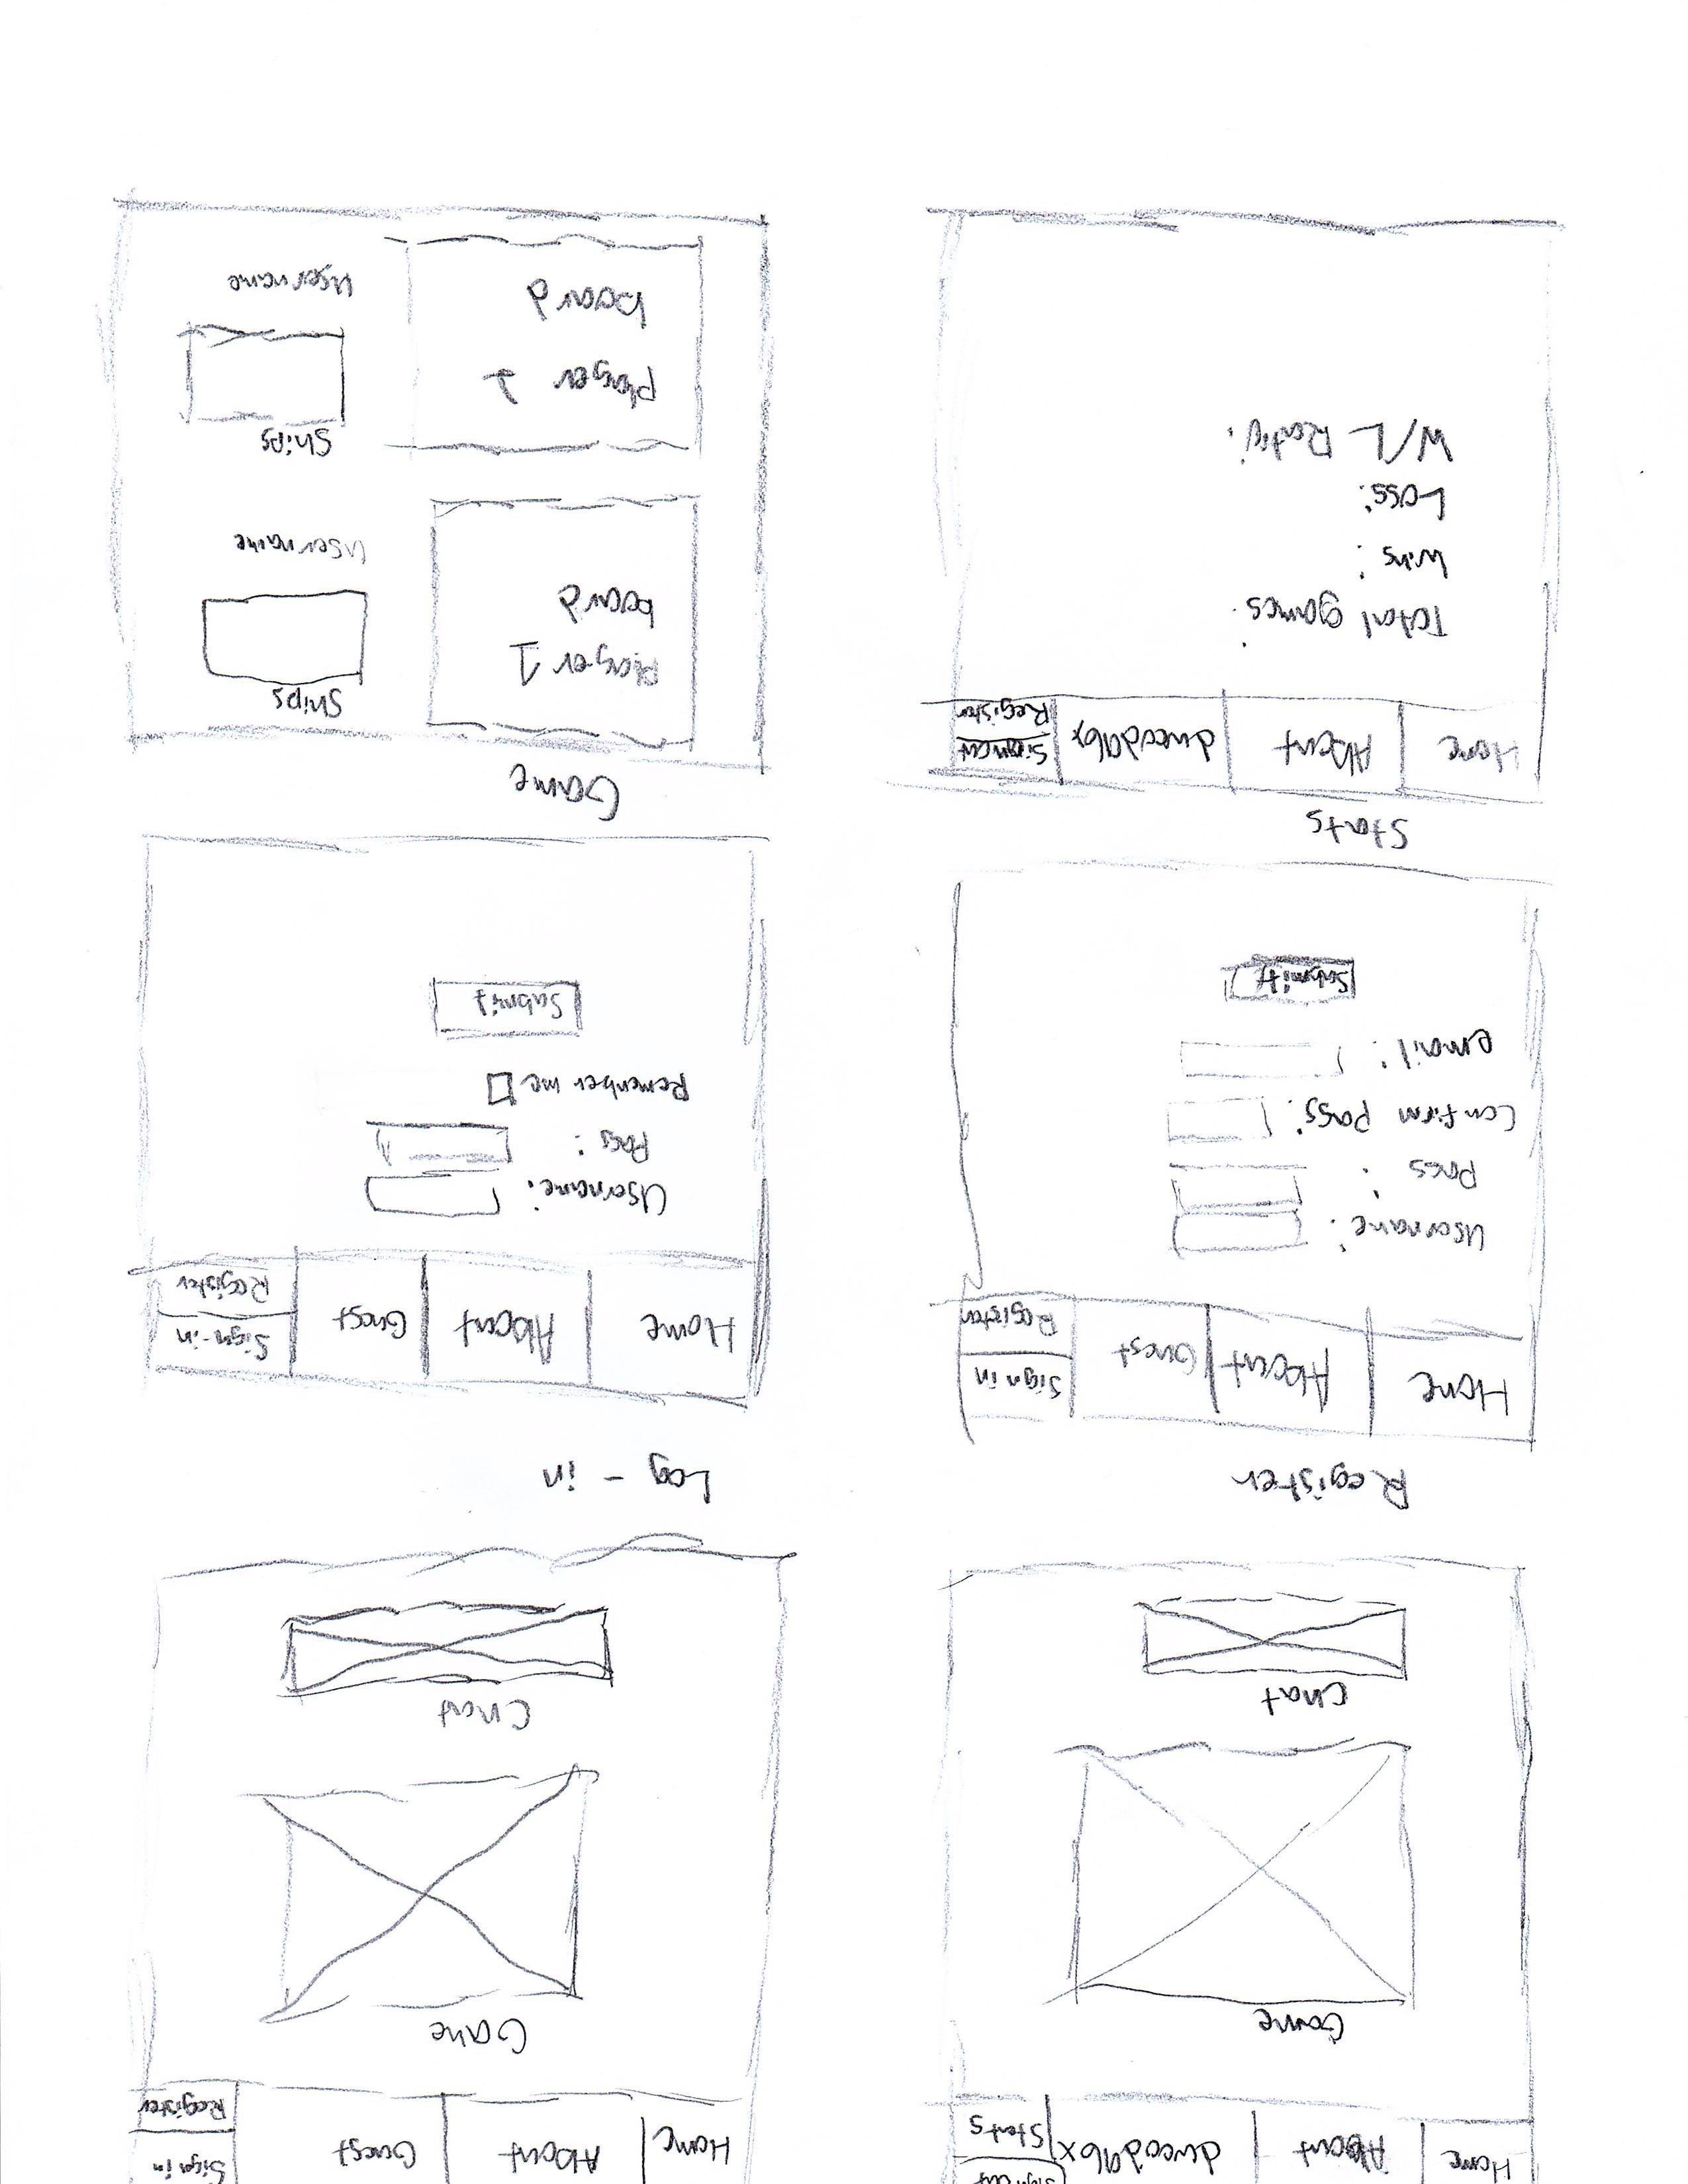 Home About dwood96x Sign out
Stats
Game
Chat
Home About Guest Sign in
Register
Game
Chat
Register
Home About Guest Sign in
Register
Username:
Pass :
Confirm pass:
email:
Submit
Log - in
Home About Guest Sign-in
Register
Username:
Pass:
Remember me
Submit
Stats
Home About dwood96x Sign out
Register
Total games:
Wins:
Loss:
W/L Ratio:
Game
Player 1
board
Ships
Username
player 2
board
Ships
Username